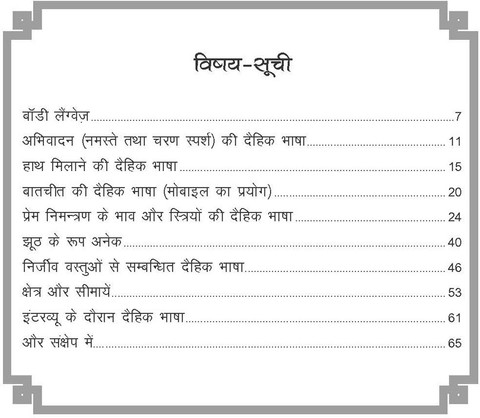 विषय-सूची
वॉडी लैंग्वेज़ 7
अभिवादन (नमस्ते तथा चरण स्पर्श) की दैहिक भाषा 11
हाथ मिलाने की दैहिक भाषा 15
वातचीत की दैहिक भाषा (मोबाइल का प्रयोग) 20
प्रेम निमन्त्रण के भाव और स्त्रियों की दैहिक भाषा 24
झूठ के रूप अनेक 40
निर्जीव वस्तुओं से सम्वन्धित दैहिक भाषा 46
क्षेत्र और सीमायें 53
इंटरव्यू के दौरान दैहिक भाषा 61
और संक्षेप में 65